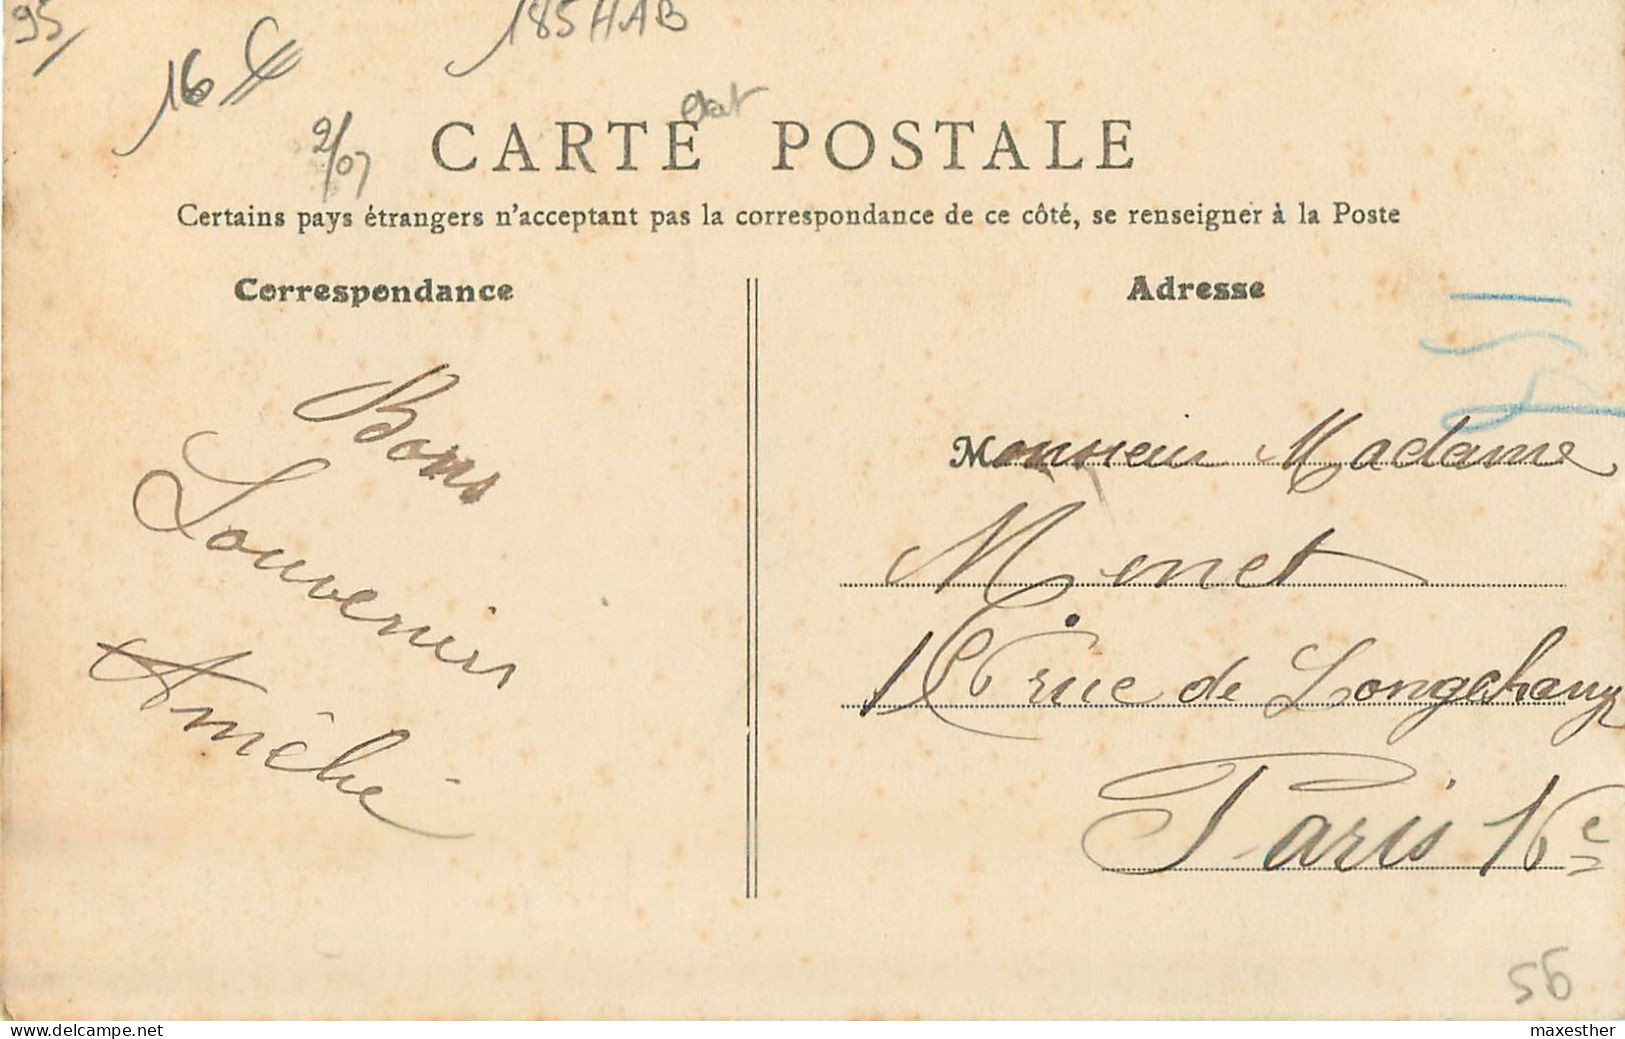 95/
185 HAB
16 €
2/07
CARTE POSTALE
Certains pays étrangers n'acceptant pas la correspondance de ce côté, se renseigner à la Poste
Correspondance
Adresse
Bons
Souvenirs
Monsieur Madame
Menet
16 rue de Longchamp
Paris 16e
56
maxesther